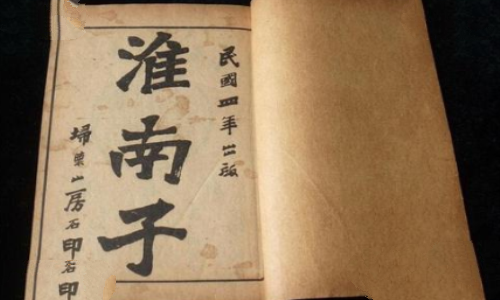 民國四年出版
淮南子
埽葉山房石印石印